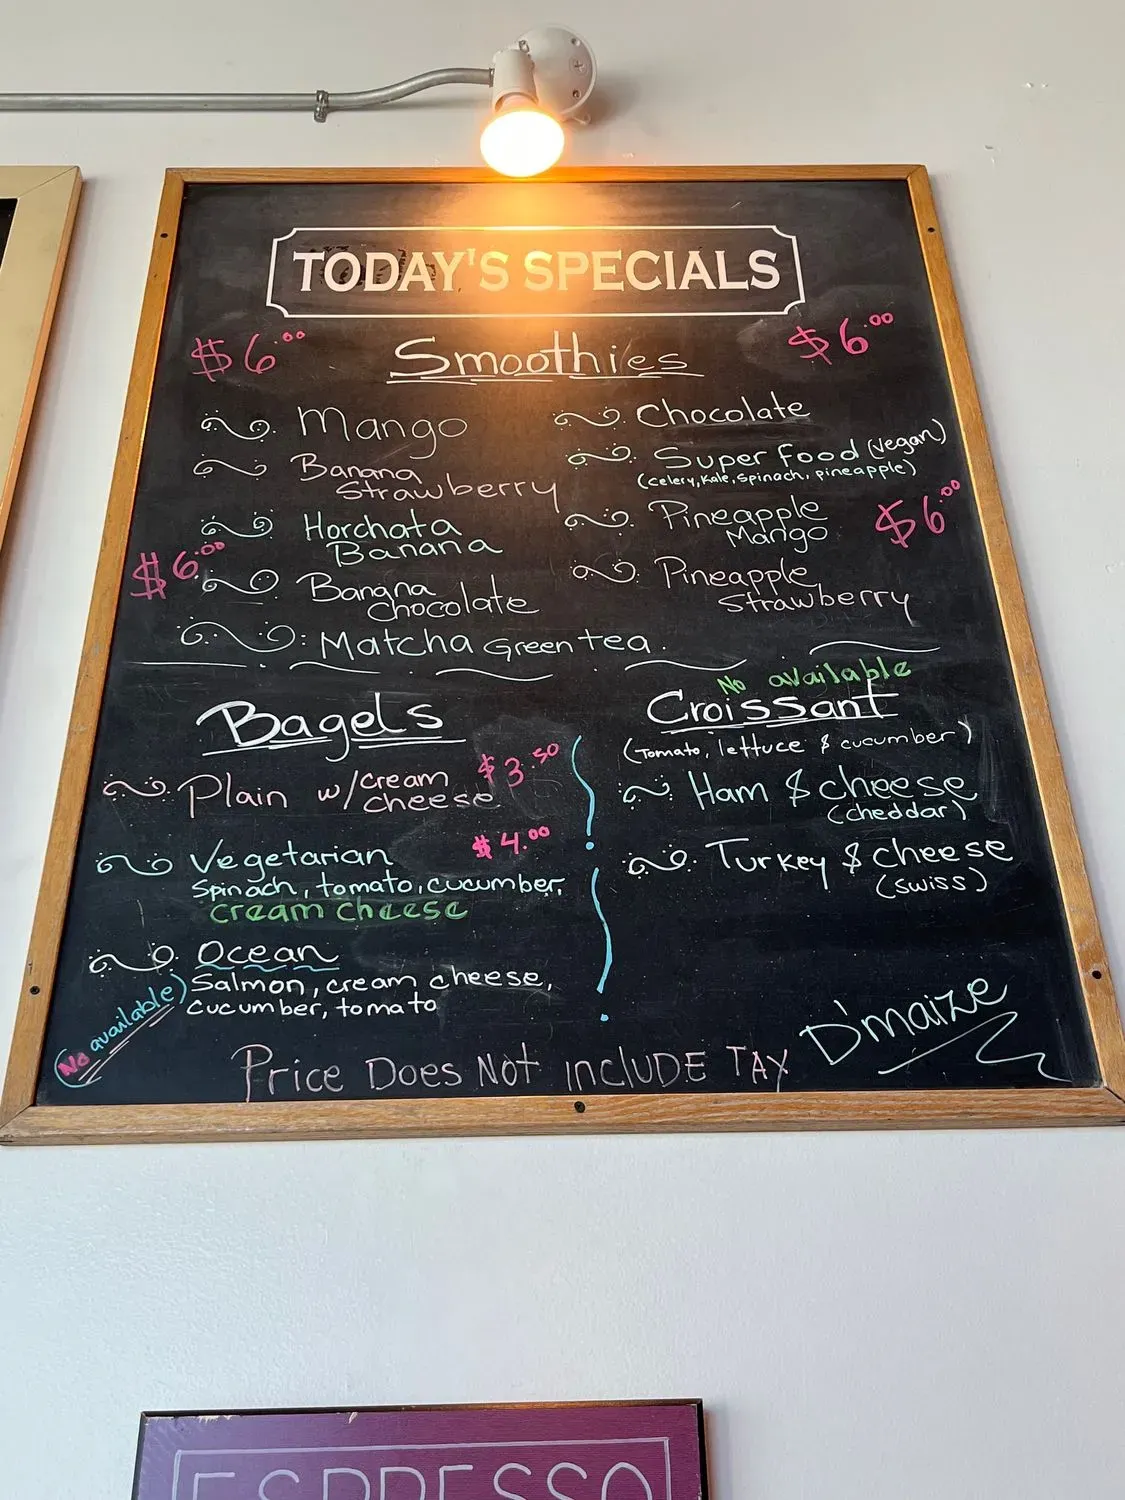 TODAY'S SPECIALS
$6.00
Smoothies
$6.00
Mango
Banana
Strawberry
Horchata
Banana
$6.00
Banana
chocolate
Matcha Green tea.
Chocolate
Super Food (vegan)
(celery, Kale, spinach, pineapple)
Pineapple
Mango
$6.00
Pineapple
Strawberry
Bagels
Plain w/cream
cheese
$3.50
Vegetarian
$4.00
Spinach, tomato, cucumber,
cream cheese
Ocean
Salmon, cream cheese,
cucumber, tomato
(No available)
No available
Croissant
(Tomato, lettuce & cucumber)
Ham & cheese
(cheddar)
Turkey & cheese
(swiss)
D'maize
Price Does Not INCLUDE TAX
ESPRESSO